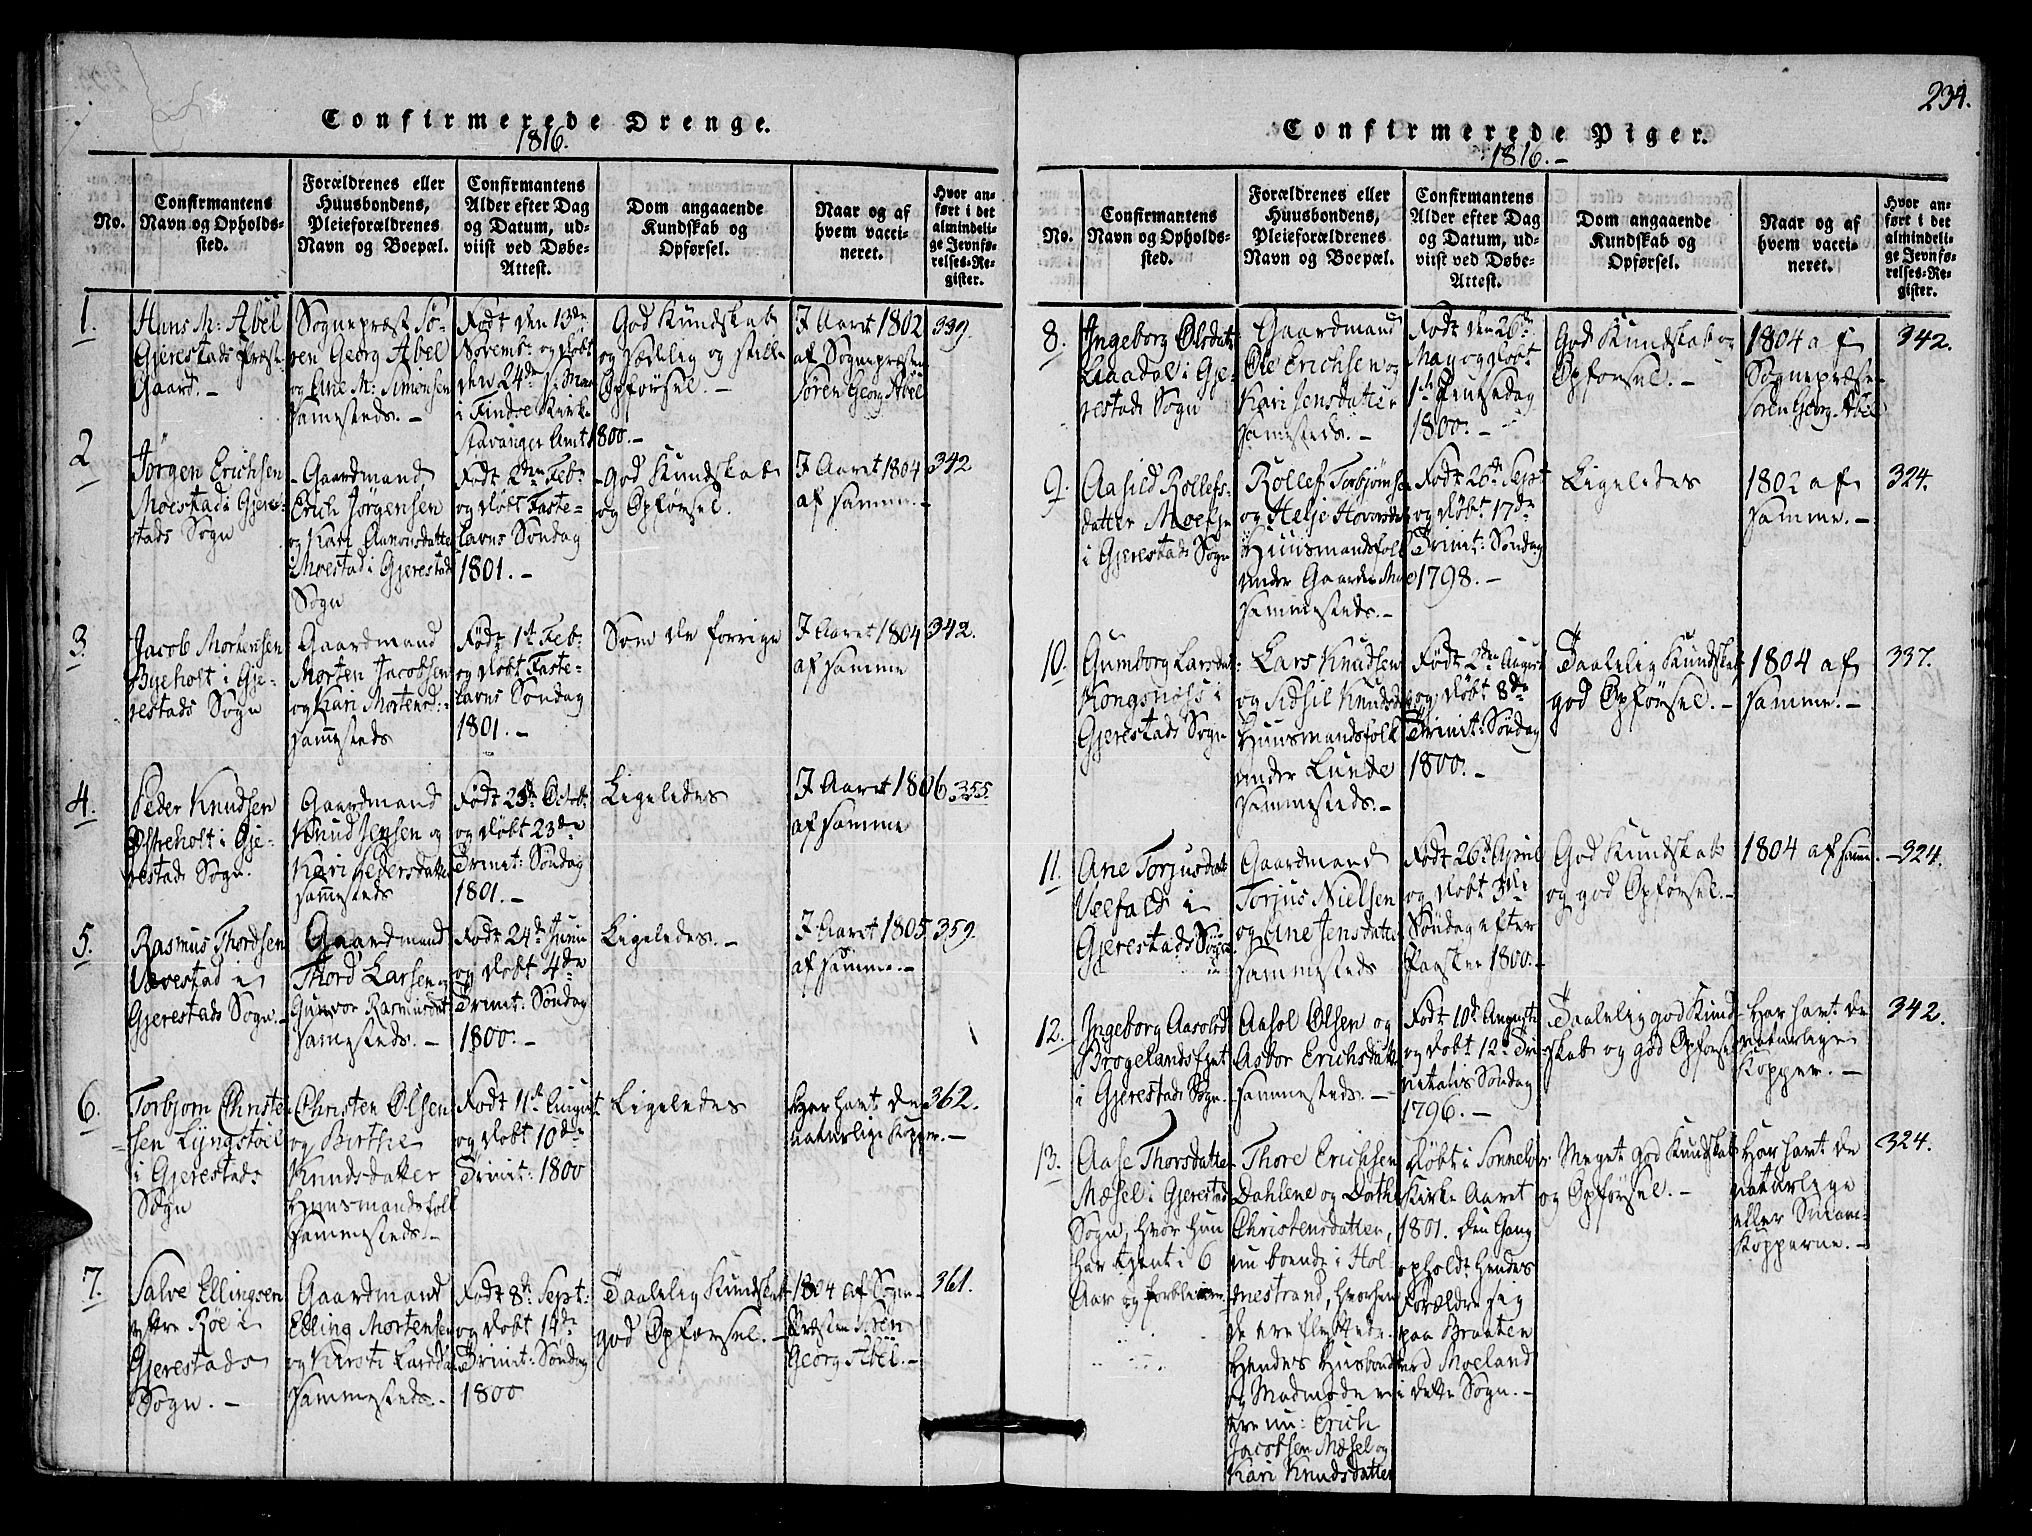 234.
Confirmerede Drenge.
1816.
No.
Confirmantens
Navn og Opholds-
sted.
Forældrenes eller
Huusbondens,
Pleieforældrenes
Navn og Boepæl.
Confirmantens
Alder efter Dag
og Datum, ud-
viist ved Døbe-
Attest.
Dom angaaende
Kundskab og
Opførsel.
Naar og af
hvem vacci-
neret.
Hvor an-
ført i det
almindeli-
ge Jevnfø-
relses-Re-
gister.
1.
Hans M: Abel
Gjerestads Præste
Gaard. -
Sognepræst Sø-
ren Georg Abel
og Ane M: Simonsen
sammesteds. -
Født den 13de
Novemb: og døbt
den 24de
i Findøe Kirke
Stavanger Amt 1800. -
God Kundskab
og sædelig og stille
Opførsel. -
I Aaret 1802
af Sognepræsten
Søren Georg Abel
339.
2
Jørgen Erichsen
Moestad i Gjere-
stads Sogn
Gaardmand
Erich Jørgensen
og Kari Aanonsdatter
Moestad i Gjerestads
Sogn
Født 2den Feb:
og døbt Faste-
lavns Søndag
1801. -
God Kundskab
og Opførsel.
I Aaret 1804
af samme. -
342
3.
Jacob Mortensen
Byeholt i Gje-
restads Sogn
Gaardmand
Morten Jacobsen
og Kari Mortensd:
sammesteds
Født 1st Feb:
og døbt Faste-
lavns Søndag
1801. -
Som de forrige
I Aaret 1804
af samme
342.
4.
Peder Knudsen
Østreholt i Gje-
restads Sogn.
Gaardmand
Knud Jensen og
Kari Pedersdatter
sammesteds
Født 25de Octob:
og døbt 23de
Trinit: Søndag
1801. -
Ligeledes
I Aaret 1806
af samme
355.
5.
Rasmus Thordsen
Vævestad i
Gjerestads Sogn. -
Gaardmand
Thord Larsen og
Gunvor Rasmusdat
sammesteds. -
Født 24de Junii
og døbt 4de
Trinit: Søndag
1800. -
Ligeledes. -
I Aaret 1805
af samme. -
359.
6.
Torbjørn Christe
sen Lyngstøel
i Gjerestads
Sogn
Christen Olsen
og Birthe
Knudsdatter
Huusmandsfolk
sammesteds. -
Født 11te August
og døbt 10de
Trinit: 1800
Ligeledes
Har havt de
naturlige Kopper. -
362.
7.
Salve Ellingsen
ytre Røe i
Gjerestads
Sogn. -
Gaardmand
Elling Mortensen
og Kirsti Larsda
sammesteds. -
Født 8de Sept:
og døbt 14de
Trinit: Søndag
1800
Taalelig Kundskab
god Opførsel. -
1804 af Sogne-
Præsten Søren
Georg Abel. -
361.
Confirmerede Piger.
1816. -
No.
Confirmantens
Navn og Opholds-
sted.
Forældrenes eller
Huusbondens,
Pleieforældrenes
Navn og Boepæl.
Confirmantens
Alder efter Dag
og Datum, ud-
viist ved Døbe-
Attest.
Dom angaaende
Kundskab og
Opførsel.
Naar og af
hvem vacci-
neret.
Hvor an-
ført i det
almindeli-
ge Jevnfø-
relses-Re-
gister.
8.
Ingeborg Olsdat
i Gje-
restads Sogn
Gaardmand
Ole Erichsen og
Kari Jensdatter
sammesteds. -
Født den 26de
May og døbt
1ste Pintsedag
1800. -
God Kundskab og
Opførsel. -
1804 af
Sognepræst
Søren Georg Abel
342.
9.
Aasild Rollefs-
datter Moe
i Gjerestads Sogn
Rollef Torbjørnsen
og Helje
Huusmandsfolk
under Gaarden Moe
sammesteds. -
Født 20de Sept
og døbt 17de
Trinit: Søndag
1798. -
Ligeledes
1802 af
samme. -
324.
10.
Gumborg Larsdat:
Kongsnæss i
Gjerestads Sogn
Lars Knudsen
og Sidsil Knudsd
Huusmandsfolk
under Lunde
sammesteds. -
Født 2den August
og døbt 8de
Trinit: Søndag
1800. -
Taalelig Kundskab
god Opførsel. -
1804 af
samme. -
337.
11.
Ane Torjusdat
Veefald i
Gjerestads Sogn
Gaardmand
Torjus Nielsen
og Ane Jensdatter
sammesteds
Født 26de April
og døbt 3die
Søndag efter
Paaske 1800. -
God Kundskab
og god Opførsel. -
1804 af samme. -
324.
12.
Ingeborg Aasolsd
Brøgelandsfjet
i Gjerestads Sogn.
Aasol Olsen og
Asbor Erichsdatt
sammesteds. -
Født 10de Augusti
og døbt 12te Tri-
nitatis Søndag
1796. -
Taalelig god Kund
skab og god Opførsel
Har havt de
naturlige
Kopper. -
342.
13.
Aase Thorsdatter
Mæsel i Gjerestads
Sogn, hvor hun
har tjent i 6
Aar og forbliver
Thore Erichsen
Dahlene og Dorthe
Christensdatter,
nu boende i Hol-
mestrand, hvorhen
de ere flyttede.
Hendes Husbond
og Madmoder
ere nu: Erich
Jacobsen Mæsel og
Kari Knudsdatter
døbt i Sønneløv
Kirke Aaret
1801. den Gang
opholdt hendes
Forældre sig
paa Braaten
ved Moeland
i dette Sogn. -
Meget god Kundskab
og Opførsel. -
Har havt de
naturlige
eller Smaae-
Kopperne. -
324.